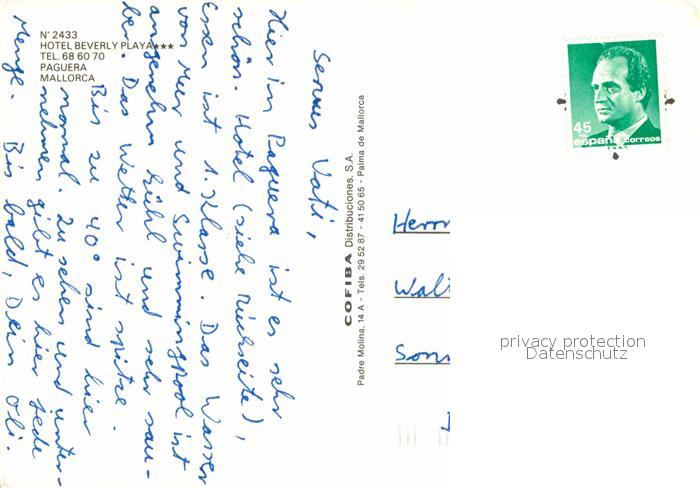 N' 2433
HOTEL BEVERLY PLAYA★★★
TEL. 68 60 70
PAGUERA
MALLORCA
Servus Vati,
Hier in Paguera ist es sehr
schön. Hotel (siehe Rückseite),
Essen ist 1. Klasse. Das Wasser
von Meer und Swimmingpool ist
angenehm kühl und sehr sau-
ber. Das Wetter ist spitze.
Bis zu 40° sind hier
normal. Zu sehen und unter-
nehmen gibt es hier jede
Menge. Bis bald, Dein Oli.
COFIBA Distribuciones, S.A.
Padre Molina, 14 A - Tels. 29 52 87 - 41 50 65 - Palma de Mallorca
45
españa correos
Herrn
Wal
Son
privacy protection
Datenschutz